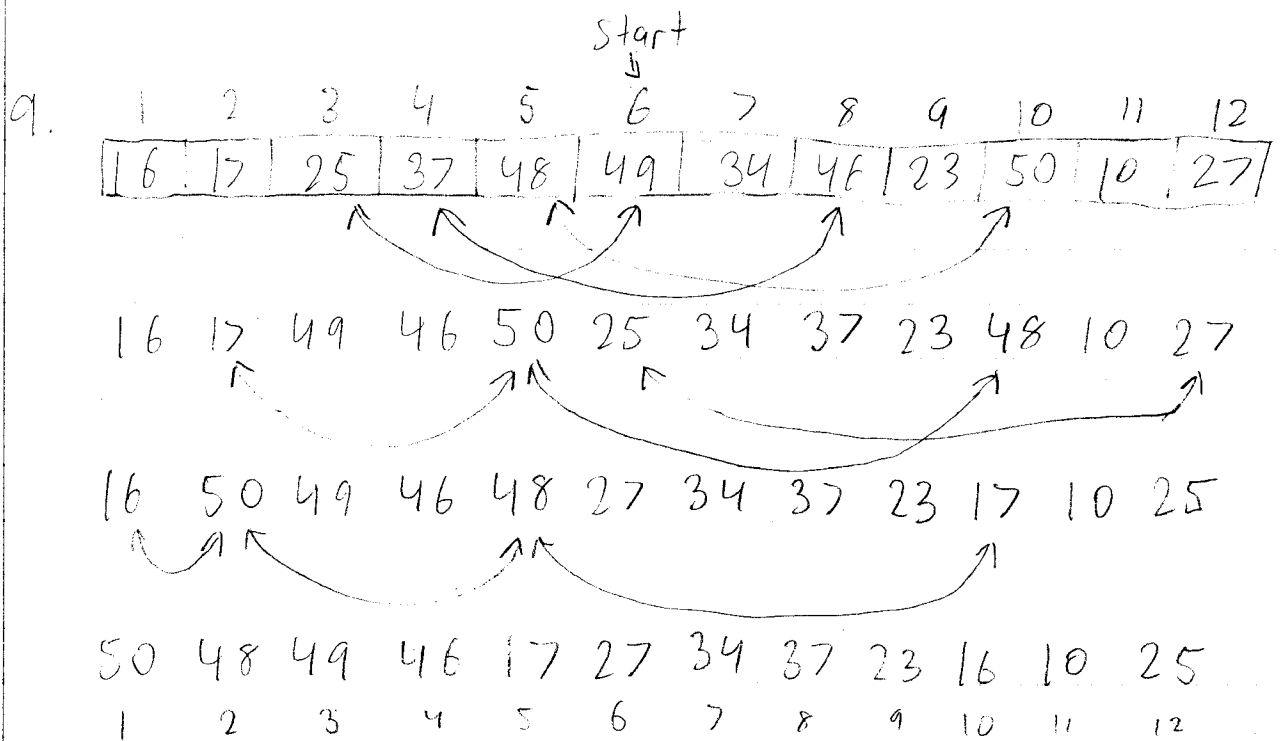 Start
9. 1 2 3 4 5 6 7 8 9 10 11 12
16 17 25 37 48 49 34 46 23 50 10 27
16 17 49 46 50 25 34 37 23 48 10 27
16 50 49 46 48 27 34 37 23 17 10 25
50 48 49 46 17 27 34 37 23 16 10 25
1 2 3 4 5 6 7 8 9 10 11 12